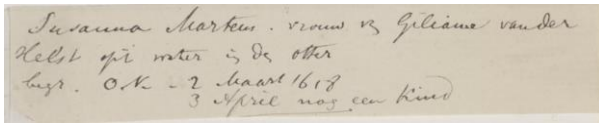 Susanna Martens. vrouw vą Giliame van der
Helst opt water in den otter
begr. O.K. - 2 Maart 1618
3 April nog een Kind